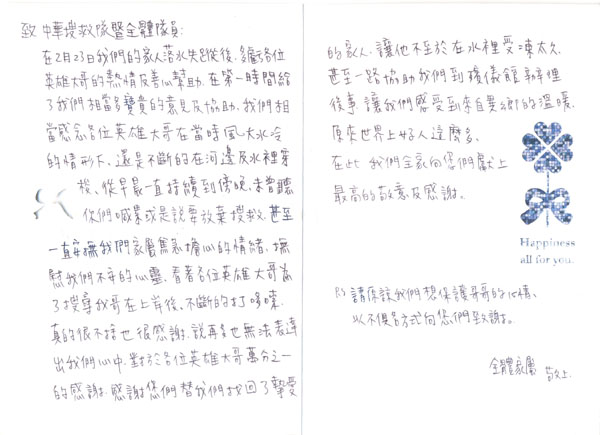 致 中華搜救隊暨全體隊員:
在2月23日我們的家人落水失蹤後,多虧各位
英雄大哥的熱情及善心幫助,在第一時間給
了我們相當多寶貴的意見及協助,我們相
當感念各位英雄大哥在當時風大水冷
的情形下,還是不斷的在河邊及水裡穿
梭,從早晨一直持續到傍晚,未曾聽
你們喊累或是說要放棄搜救,甚至
一直安撫我們家屬焦急擔心的情緒,撫
慰我們不安的心靈,看著各位英雄大哥為
了搜尋我哥在上岸後,不斷的打哆嗦,
真的很不捨也很感謝,說再多也無法表達
出我們心中,對於各位英雄大哥萬分之一
的感謝,感謝您們替我們找回了摯愛
的家人,讓他不至於在水裡受凍太久,
甚至一路協助我們到殯儀館辦理
後事,讓我們感受到來自異鄉的溫暖,
原來世界上好人這麼多。
在此 我們全家向您們獻上
最高的敬意及感謝。
Happiness
all for you.
PS 請原諒我們想保護哥哥的心情,
以不具名方式向您們致謝。
全體家屬 敬上